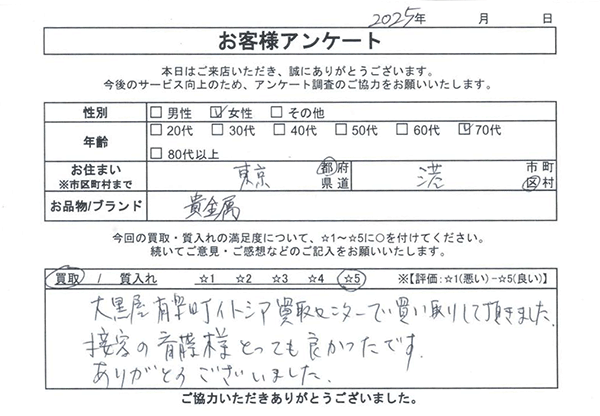 2025年 月 日
お客様アンケート
本日はご来店いただき、誠にありがとうございます。
今後のサービス向上のため、アンケート調査のご協力をお願いいたします。
性別 □ 男性 ☑ 女性 □ その他
年齢 □ 20代 □ 30代 □ 40代 □ 50代 □ 60代 ☑ 70代
□ 80代以上
お住まい ※市区町村まで 東京 都府県道 港 市町区村
お品物/ブランド 貴金属
今回の買取・質入れの満足度について、☆1～☆5に○を付けてください。
続いてご意見・ご感想などのご記入をお願いいたします。
買取 / 質入れ ☆1 ☆2 ☆3 ☆4 ☆5 ※【評価:☆1(悪い)-☆5(良い)】
大黒屋有楽町イトシア買取センターで買い取りして頂きました。
接客の斉藤様とっても良かったです。
ありがとうございました。
ご協力いただきありがとうございました。